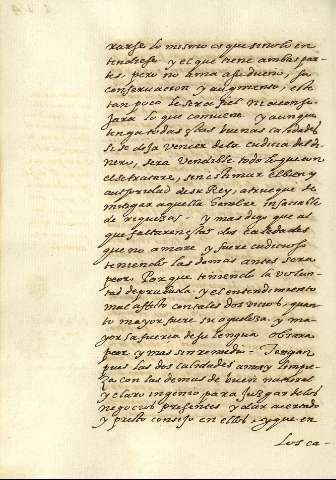 rarse lo mismo es que si no lo en
tendiese y el que tiene ambas par-
tes, pero no ama a su dueño, su
conservacion y augmento, este
tan poco le sera fiel ni aconse
jara lo que conviene y aunque
tenga todas estas buenas calidades
si se dexa vencer de la cudicia del di-
nero, sera vendible todo lo que con
el se tratare, sin estimar el bien y
autforidad de su Rey, a trueque de
mitigar aquella hambre insaciable
de riquezas - y mas digo que al
que faltaren estas dos calidades
que no amare y fuere cudicioso
teniendo las demas antes sera
peor Porque teniendo la volun
tad depravada, y el entendimiento
mal afecto con tales dos vicios, quan
to mayor fuere su agudeza y ma
yor la fuerça de su lengua obrara
peor y mas sin remedio - Tengan
pues las dos calidades amor y limpie
za con las demas de buen natural
y claro ingenio para juzgar de los
negocios presentes y dar acertado
y presto consejo en ellos, y que en
los ca-